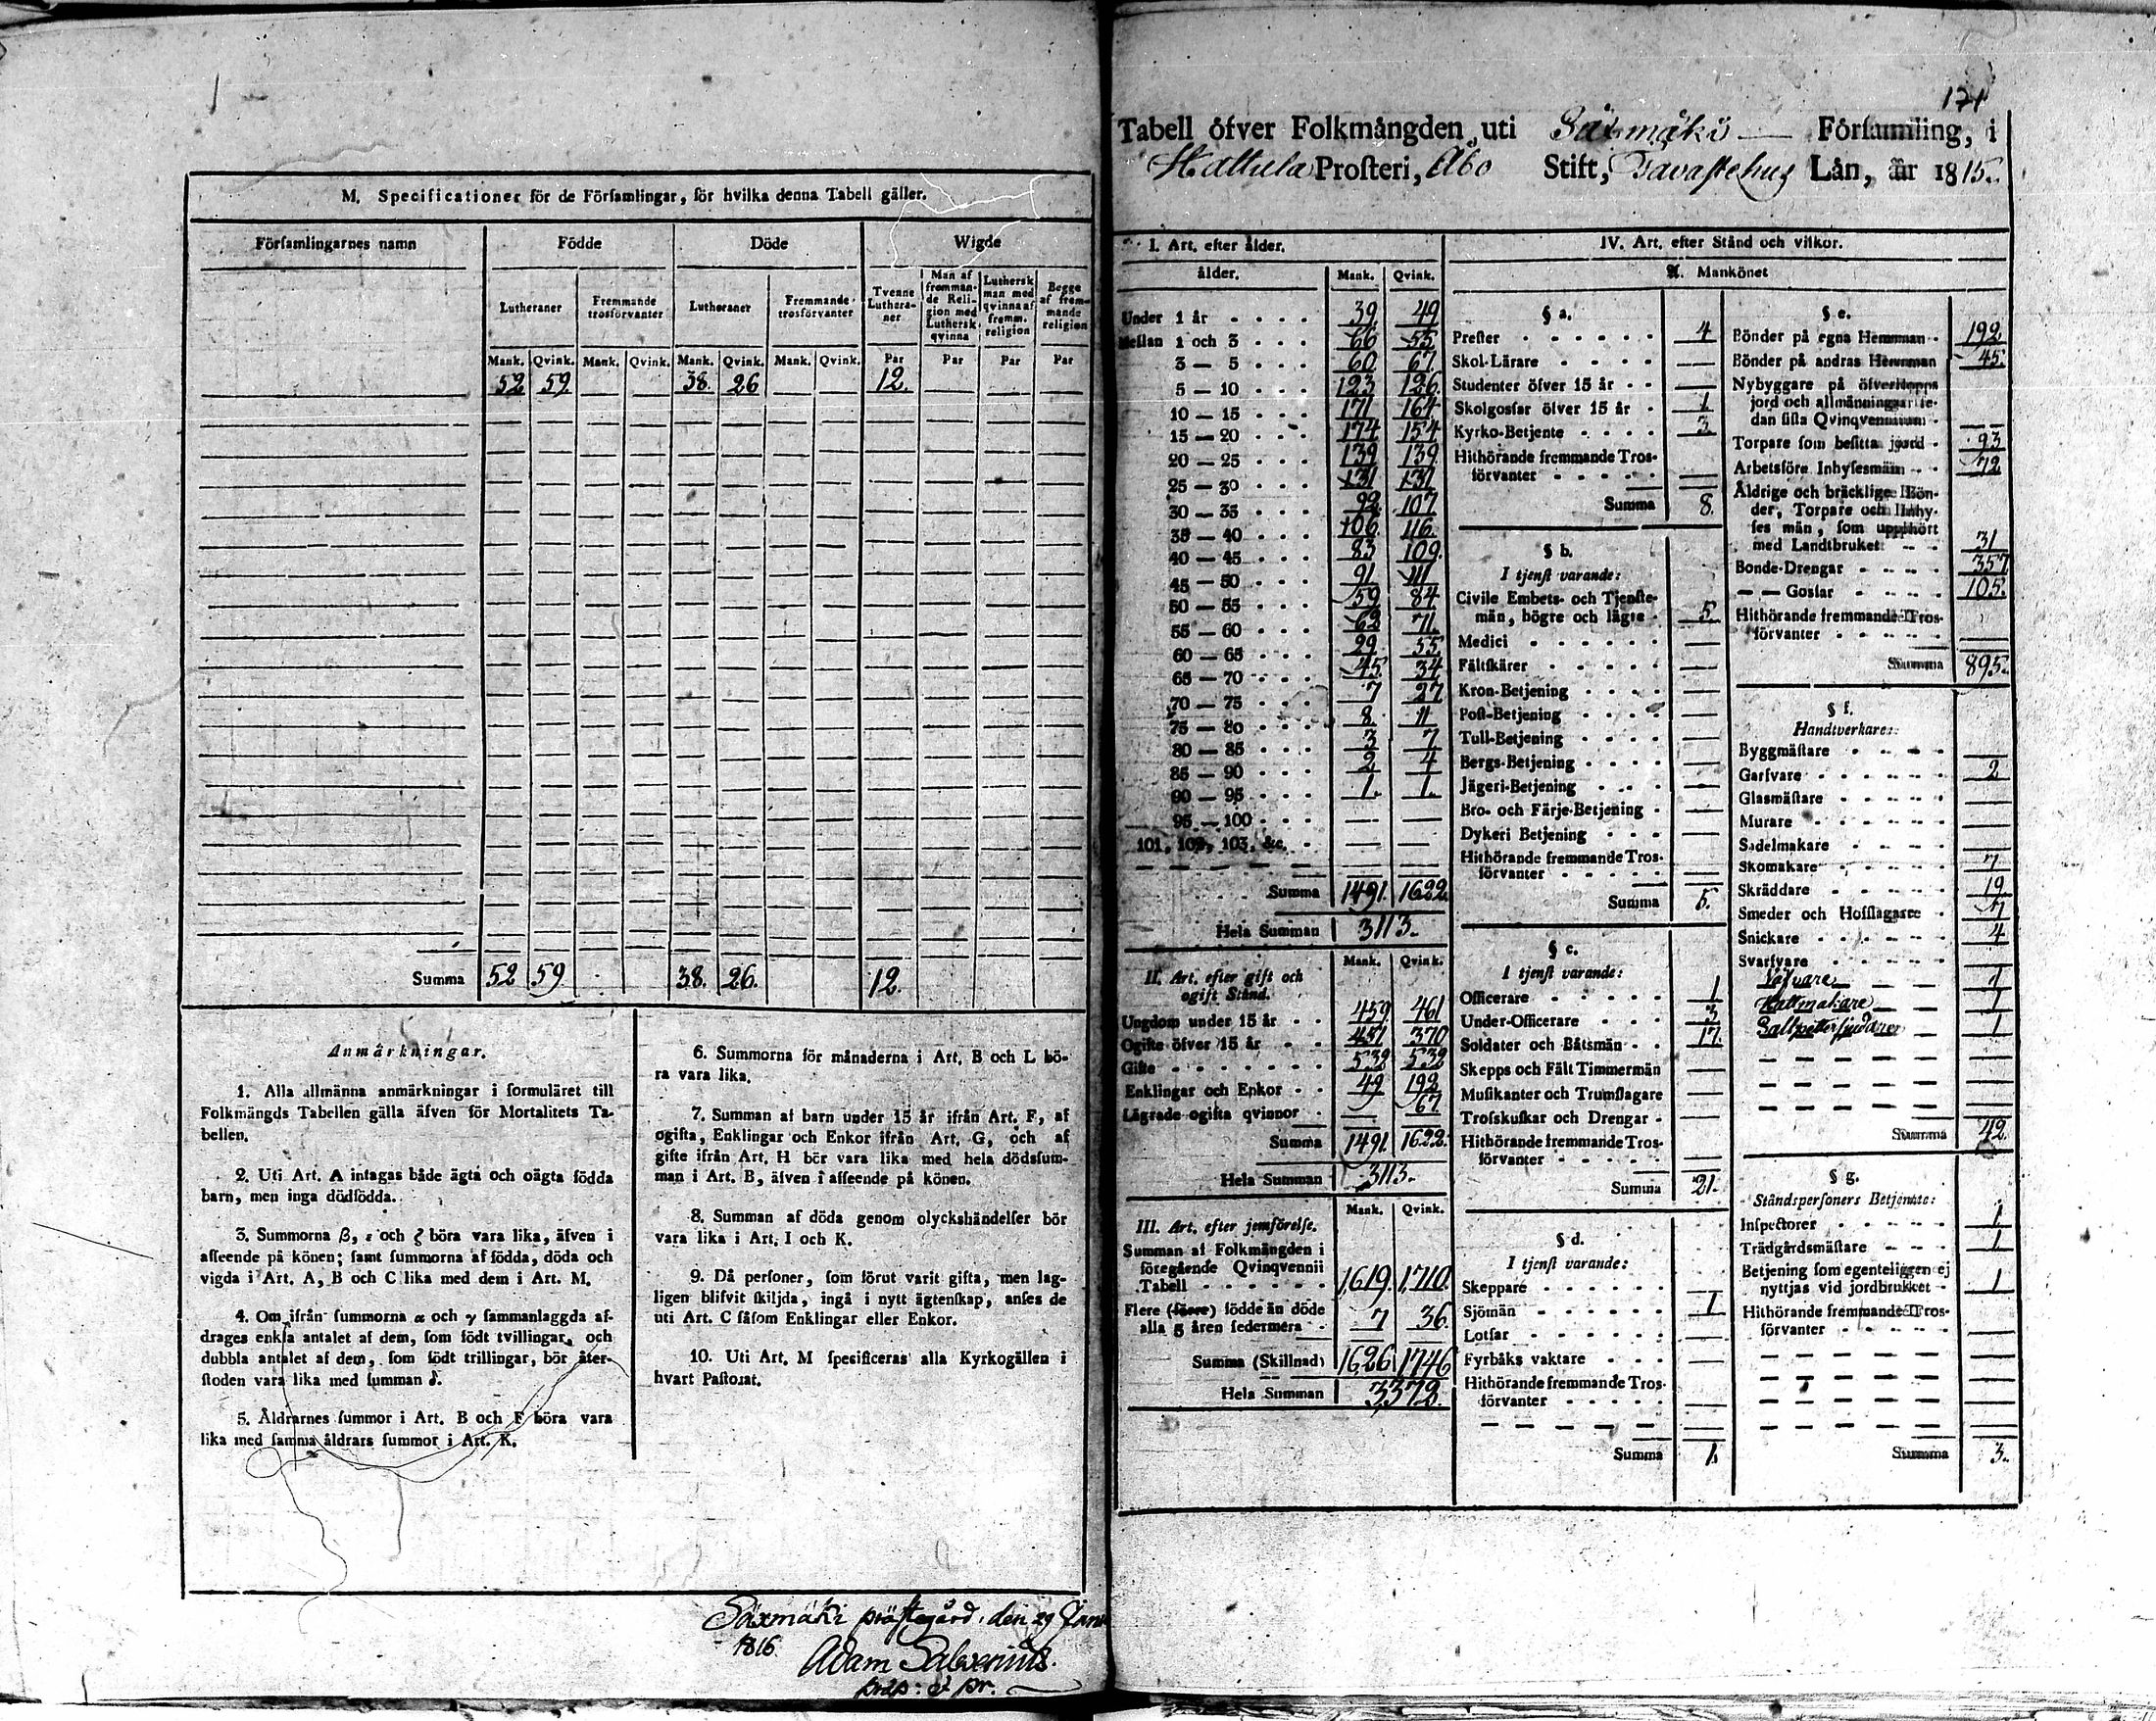 M. Specificationer för de Församlingar, för hvilka denna Tabell gäller.
Församlingarnes namn Födde Döde Wigde
Lutheraner Fremmande trosförvanter Lutheraner Fremmande trosförvanter Tvenne Lutheraner Man af fremmande Religion med Luthersk qvinna Luthersk man med qvinna af fremm. religion Begge af fremmande religion
Mank. Qvink. Mank. Qvink. Mank. Qvink. Mank. Qvink. Par Par Par Par
52 59. 38. 26 12.
Summa 52 59. 38. 26. 12.
Anmärkningar.
1. Alla allmänna anmärkningar i formuläret till
Folkmängds Tabellen gälla äfven för Mortalitets Ta-
bellen.
2. Uti Art. A intagas både ägta och oägta födda
barn, men inga dödfödda.
3. Summorna β, ε och ζ böra vara lika, äfven i
afseende på könen; samt summorna af födda, döda och
vigda i Art. A, B och C lika med dem i Art. M.
4. Om ifrån summorna α och γ sammanlaggda af-
drages enkla antalet af dem, som födt tvillingar, och
dubbla antalet af dem, som födt trillingar, bör åter-
stoden vara lika med summan δ.
5. Åldrarnes summor i Art. B och F böra vara
lika med samma åldrars summor i Art. K.
6. Summorna för månaderna i Art. B och L bö-
ra vara lika.
7. Summan af barn under 15 år ifrån Art. F, af
ogifta, Enklingar och Enkor ifrån Art. G, och af
gifte ifrån Art. H bör vara lika med hela dödssum-
man i Art. B, äfven i afseende på könen.
8. Summan af döda genom olyckshändelser bör
vara lika i Art. I och K.
9. Då personer, som förut varit gifta, men lag-
ligen blifvit skiljda, ingå i nytt ägtenskap, anses de
uti Art. C såsom Enklingar eller Enkor.
10. Uti Art. M specificeras alla Kyrkogällen i
hvart Pastorat.
Säxmäki prästegård, den 29 Janu
1816.
Adam Salvenius.
171
Tabell öfver Folkmängden uti Säxmäki Församling, i
Hattula Prosteri, Åbo Stift, Tavastehus Län, år 1815.
I. Art. efter ålder.
ålder. Mank. Qvink.
Under 1 år 39 49
Mellan 1 och 3 66 55
3 — 5 60 67.
5 — 10 123 126.
10 — 15 171 164
15 — 20 174 154
20 — 25 139 139
25 — 30 131 131
30 — 35 92 107
35 — 40 106. 116.
40 — 45 83 109.
45 — 50 91 111
50 — 55 59 84
55 — 60 62 71.
60 — 65 29 55
65 — 70 45. 34
70 — 75 7 27
75 — 80 8 11
80 — 85 3 7
85 — 90 2 4
90 — 95 1. 1.
95 — 100
101, 102, 103, &c.
Summa 1491. 1622.
Hela Summan 3113.
Mank. Qvink.
II. Art. efter gift och
ogift Stånd.
Ungdom under 15 år 459 461
Ogifte öfver 15 år 451 370
Gifte 532 532
Enklingar och Enkor 49 192
Lägrade ogifta qvinnor 67.
Summa 1491. 1622.
Hela Summan 3113.
Mank. Qvink.
III. Art. efter jemförelse.
Summan af Folkmängden i
föregående Qvinqvennii
Tabell 1,619. 1,710.
Flere (färre) födde än döde
alla 5 åren sedermera 7 36.
Summa (Skillnad) 1626 1746
Hela Summan 3,372.
IV. Art. efter Stånd och vilkor.
A. Mankönet
§ a.
Prester 4
Skol-Lärare
Studenter öfver 15 år
Skolgossar öfver 15 år 1
Kyrko-Betjente 3
Hithörande fremmande Tros-
förvanter
Summa 8.
§ b.
I tjenst varande:
Civile Embets- och Tjenste-
män, högre och lägre 5.
Medici
Fältskärer
Kron-Betjening
Post-Betjening
Tull-Betjening
Bergs-Betjening
Jägeri-Betjening
Bro- och Färje-Betjening
Dykeri Betjening
Hithörande fremmande Tros-
förvanter
Summa 5.
§ c.
I tjenst varande:
Officerare 1
Under-Officerare 3
Soldater och Båtsmän 17.
Skepps och Fält Timmermän
Musikanter och Trumslagare
Trosskuskar och Drengar
Hithörande fremmande Tros-
förvanter
Summa 21.
§ d.
I tjenst varande:
Skeppare
Sjömän 1
Lotsar
Fyrbåks vaktare
Hithörande fremmande Tros-
förvanter
Summa 1.
§ e.
Bönder på egna Hemman 192
Bönder på andras Hemman 45.
Nybyggare på öfverlopps
jord och allmänningar se-
dan sista Qvinqvennium
Torpare som besitta jord 93
Arbetsföre Inhysesmän 72
Åldrige och bräcklige Bön-
der, Torpare och Inhy-
ses män, som upphört
med Landtbruket 31
Bonde-Drengar 357
— — Gossar 105.
Hithörande fremmande Tros-
förvanter
Summa 895.
§ f.
Handtverkare:
Byggmästare
Garfvare 2
Glasmästare
Murare
Sadelmakare
Skomakare 7
Skräddare 19
Smeder och Hofslagare 7
Snickare 4
Svarfvare
Väfvare 1
Hattmakare 1
Saltpettersjudare 1
Summa 42
§ g.
Ståndspersoners Betjente:
Inspectorer 1.
Trädgårdsmästare 1
Betjening som egenteligen ej
nyttjas vid jordbruket 1
Hithörande fremmande Tros-
förvanter
Summa 3.